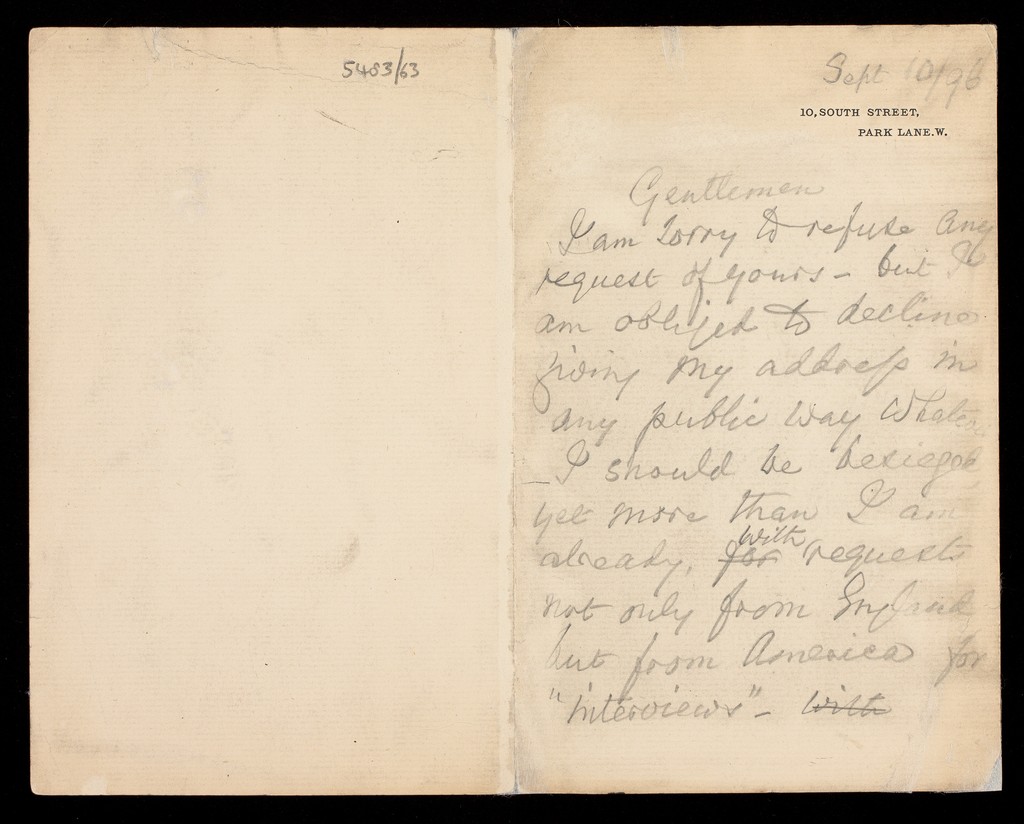 5483/63
Sept 10/96
10, SOUTH STREET,
PARK LANE. W.
Gentlemen
I am sorry to refuse any
request of yours - but I
am obliged to decline
giving my address in
any public way
_ I should be besieged
yet more than I am
already, for with requests
not only from England
but from America for
"interviews" - with